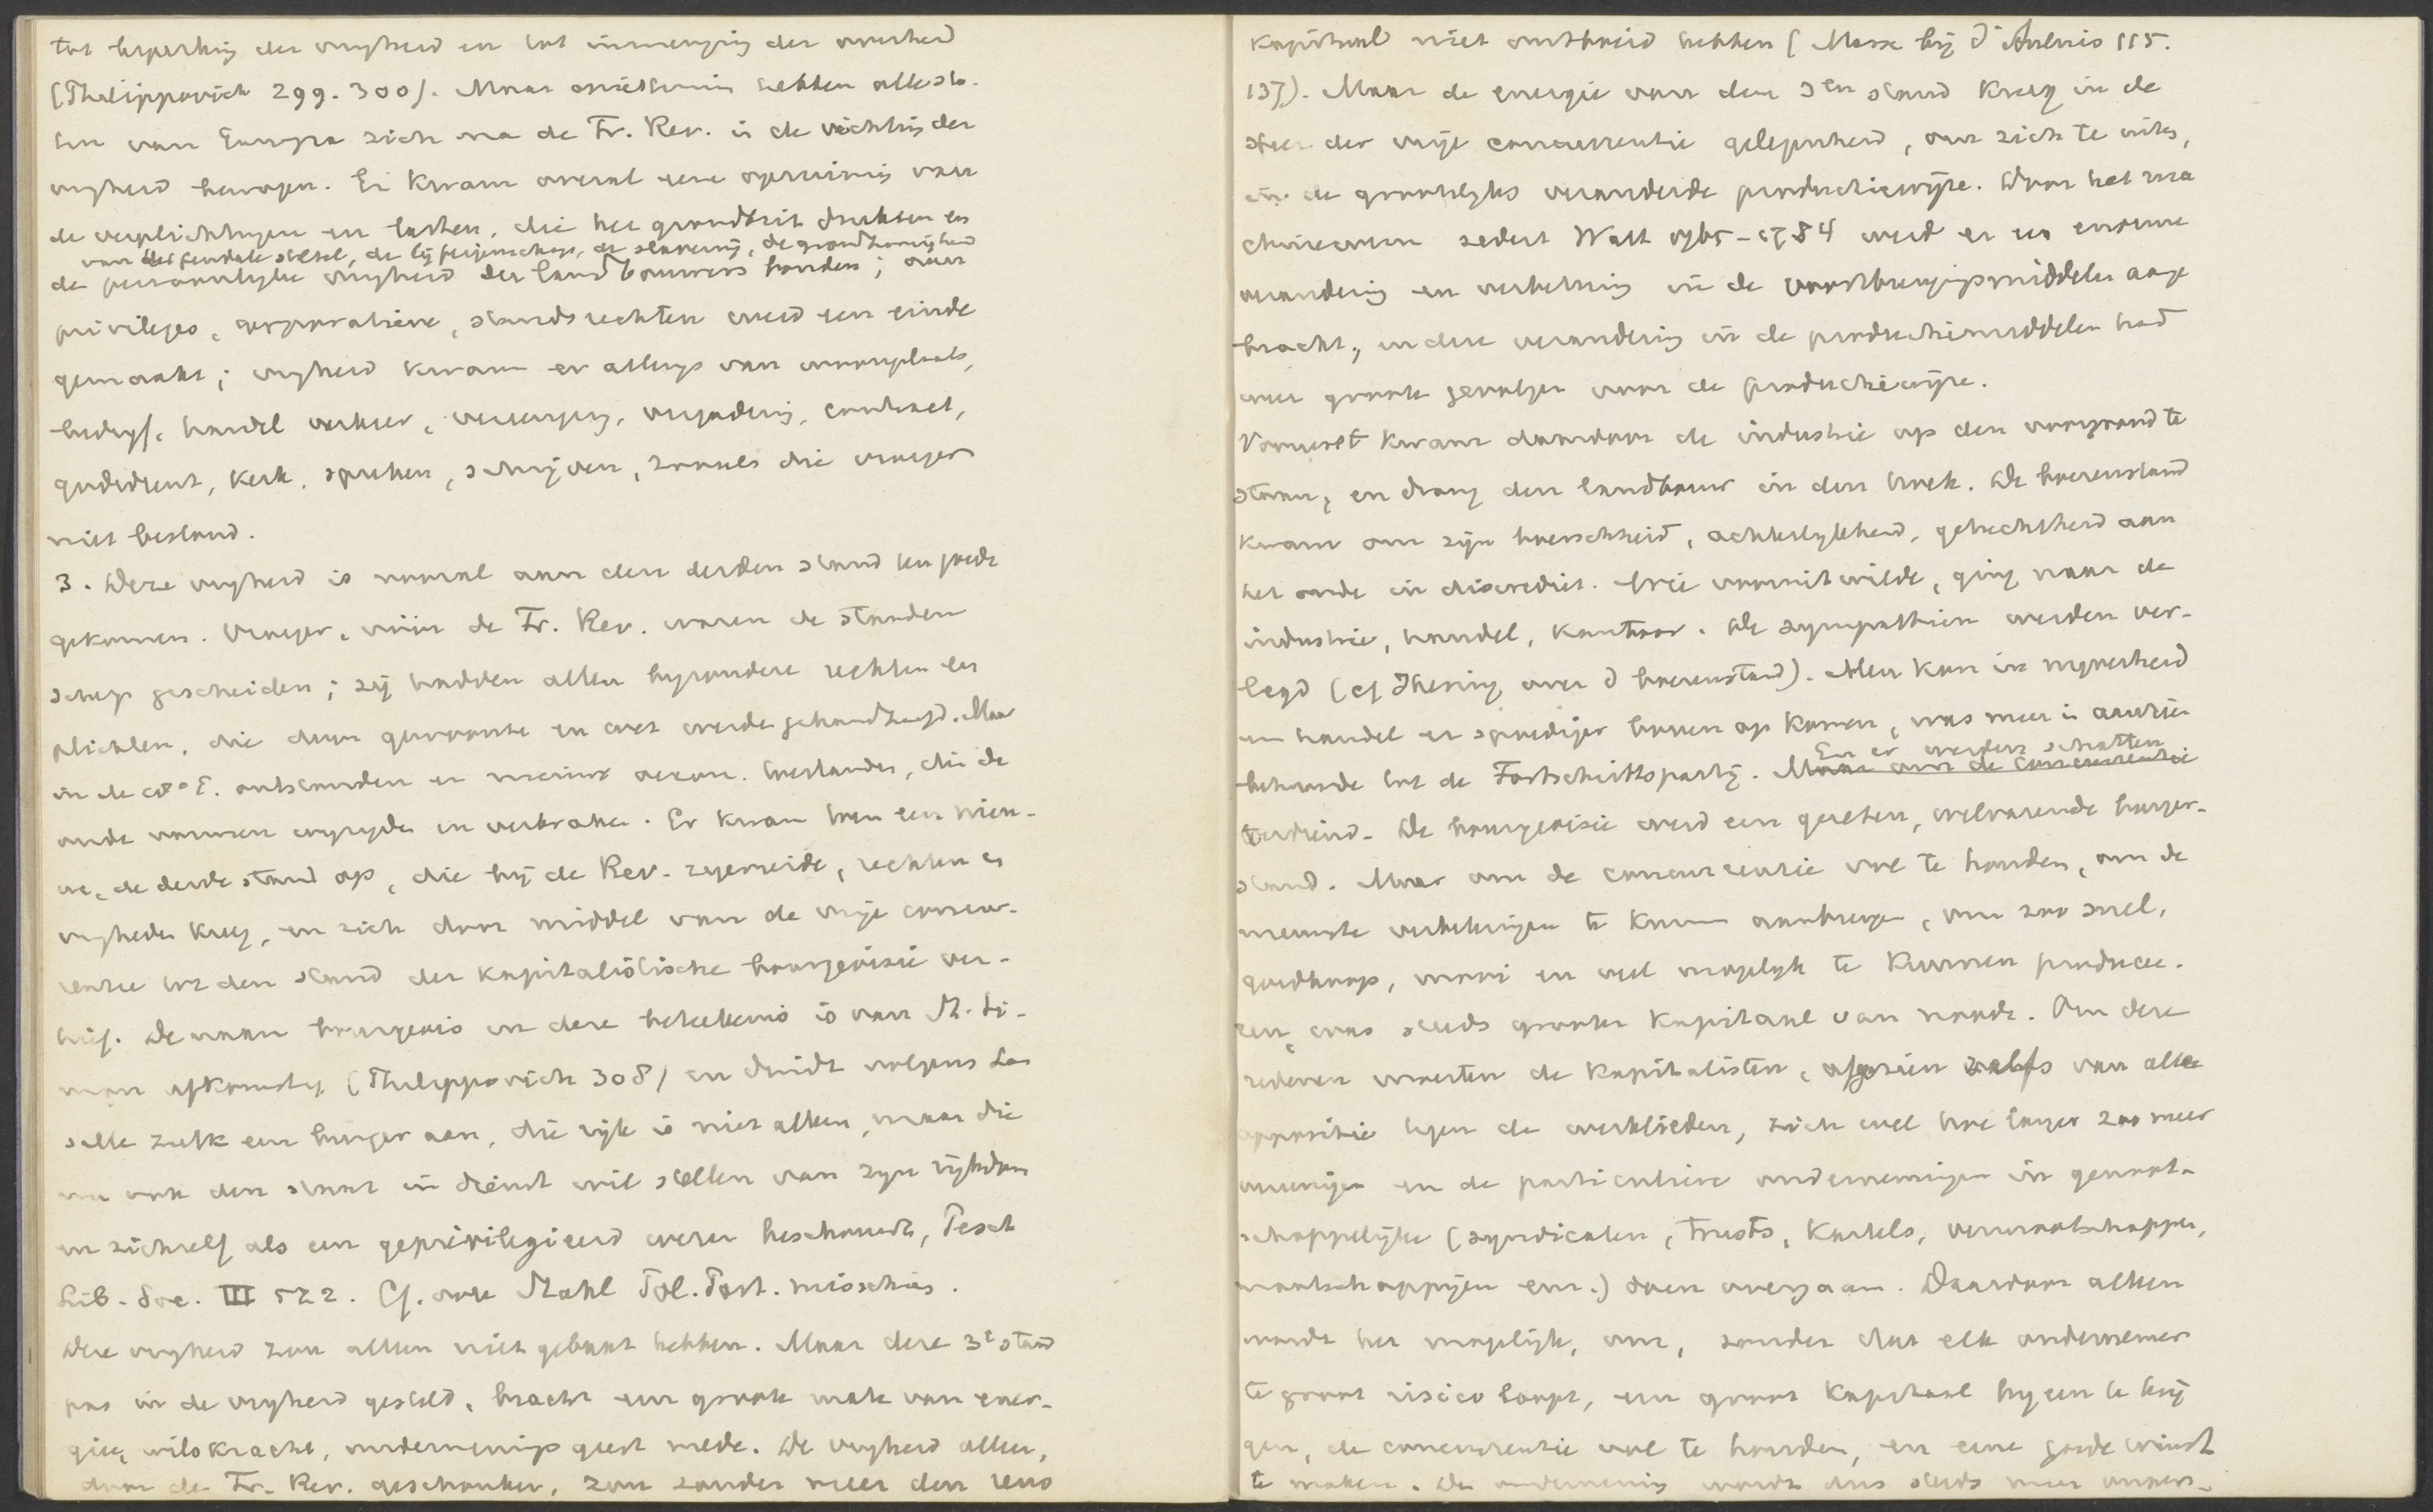 tot beperking der vrijheid en tot inmenging der overheid
(Philippovich 299. 300). Maar opnieuw hebben alle sta-
ten van Europa zich na de Fr. Rev. in de richting der
vrijheid bewogen. Er kwam overal eene opruiming van
de verplichtingen en lasten, die het grondbezit drukten en
van het feudale stelsel, de lijfeigenschap, de slavernij, de grondhorigheid
de persoonlijke vrijheid der landbouwers bonden; aan
privileges, corporatieve, standsrechten werd een einde
gemaakt; vrijheid kwam er allengs van woonplaats,
bedrijf, handel verkeer, vereeniging, vergadering, contract,
godsdienst, kerk, spreken, schrijven, zooals die vroeger
niet bestond.
3. Deze vrijheid is vooral aan den derden stand ten goede
gekomen. Vroeger, vóór de Fr. Rev. waren de standen
scherp gescheiden; zij hadden allen bijzondere rechten en
plichten, die door gewoonte en wet werden gehandhaafd. Maar
in de 18e E. ontstonden er nieuwe toestanden, die de
oude vormen wijzigden en verbraken. Er kwam toen een nieu-
we, de derde stand op, die bij de Rev. zegevierde, rechten en
vrijheden kreeg, en zich door middel van de vrije concur-
rentie tot den stand der kapitalistische bourgeoisie ver-
hief. De naam bourgeois in deze beteekenis is van St. Si-
mon afkomstig (Philippovich 308) en duidt volgens Las
salle zulk een burger aan, die rijk is niet alleen, maar die
nu ook den staat in dienst wil stellen van zijn rijkdom
en zichzelf als een geprivilegieerd wezen beschouwt, Pesch
Lib. Soc. III 522. Cf. ook Stahl
Deze vrijheid zou alleen niet gebaat hebben. Maar deze 3e stand
pas in de vrijheid gesteld, bracht een groote mate van ener-
gie, wilskracht, ondernemingsgeest mede. De vrijheid alleen,
door de Fr. Rev. geschonken, zou zonder meer den reus
kapitaal niet ontboeid hebben (Marx bij d'Aulnis 115.
137). Maar de energie van den 3en stand kreeg in de
sfeer der vrije concurrentie gelegenheid, om zich te uiten,
in de grootelijks veranderde productiewijze. Door het ma
chinewezen sedert Watt 1765-1784 werd er een enorme
verandering en verbetering in de voortbrengingsmiddelen aange
bracht; en deze verandering in de productiemiddelen had
weer groote gevolgen voor de productiewijze.
Vooreerst kwam daardoor de industrie op den voorgrond te
staan, en drong den landbouw in den hoek. De boerenstand
kwam om zijn boerschheid, achterlijkheid, gehechtheid aan
het oude in discrediet. Wie vooruit wilde, ging naar de
industrie, handel, kantoor. De sympathieën werden ver-
legd (cf Jhering over d boerenstand). Men kon in nijverheid
en handel er spoediger boven op komen, was meer in aanzien
behoorde tot de Fortschrittspartij. Maar om de concurrentie
En er werden schatten
verdiend. De bourgeoisie werd een gezeten, welvarende burger-
stand. Maar om de concurrentie vol te houden, om de
nieuwste verbeteringen te kunnen aanbrengen, om zoo snel,
goedkoop, mooi en veel mogelijk te kunnen producee-
ren, was steeds grooter kapitaal van noode. Om deze
redenen moesten de kapitalisten, afgezien zelfs van alle
oppositie tegen de werklieden, zich wel hoe langer zoo meer
vereenigen en de particuliere ondernemingen in genoot-
schappelijke (syndicaten, trusts, kartels, vennootschappen,
maatschappijen enz.) doen overgaan. Daardoor alleen
wordt het mogelijk, om, zonder dat elk ondernemer
te groot risico loopt, een groot kapitaal bijeen te krij
gen, de concurrentie vol te houden, en eene goede winst
te maken. De onderneming wordt dus steeds meer onpers-